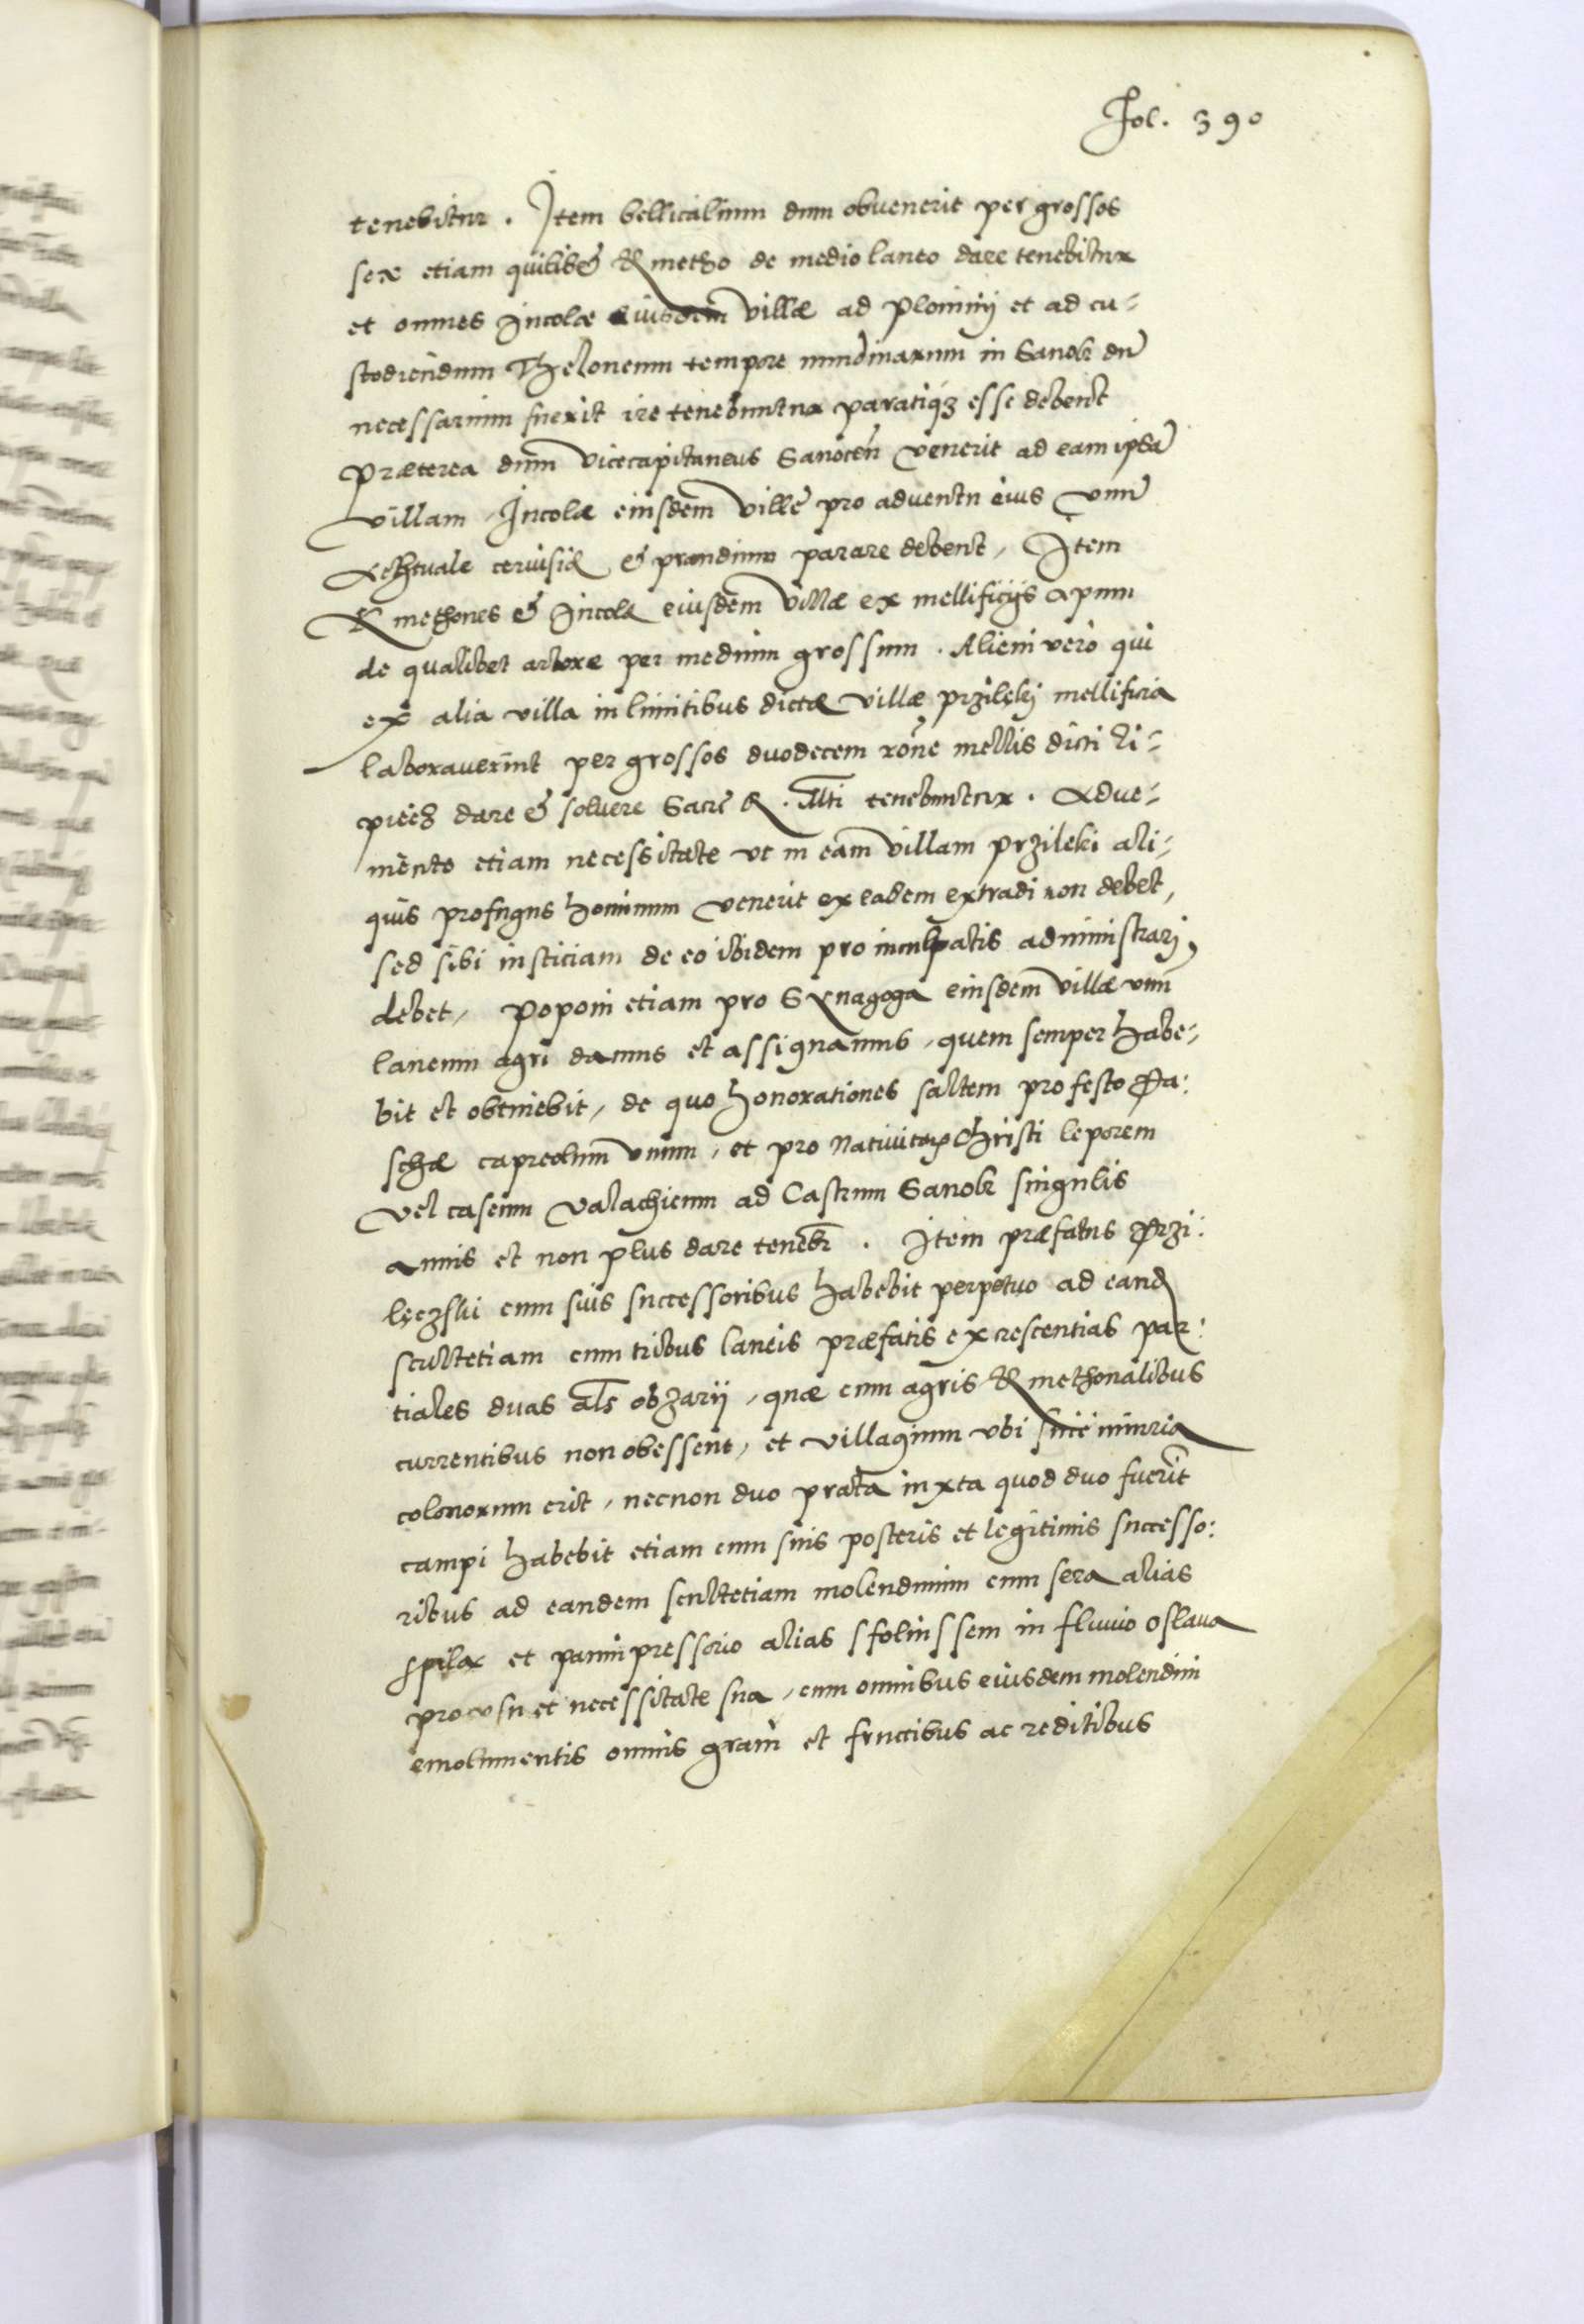 Fol. 390
tenebitur. Item bellicalium dum obvenerit per grossos
sex etiam quilibet Kmetho de medio laneo dare tenebitur
et omnes Incolæ eiusdem villæ ad Plominij et ad cu-
stodiendum Theloneum tempore nundinarum in Sanok dum
necessarium fuerit ire tenebuntur paratiq3 esse debent
Præterea dum vicecapitaneus Sanocen̄ venerit ad eam ipsā
villam, Incolæ eiusdem villę pro adventu eius vnū
Achtuale ceruisię et prandium parare debent, Item
Kmethones et Incolę eiusdem villæ ex mellificijs apum
de qualibet arbore per medium grossum. Alieni verò qui
ex alia villa in limitibus dictæ villæ przilęki mellificia
laboraverint per grossos duodecem rōne mellis dicti li-
piecz dare et solvere Sacrę R. Mti tenebuntur. Adve-
niente etiam necessitate ut in eam villam przileki ali-
quis profugus hominum venerit ex eadem extradi non debet,
sed sibi iusticiam de eo ibidem pro inculpatis administrari
debet, Poponi etiam pro Synagoga eiusdem villæ vnū
laneum agri damus et assignamus, quem semper habe-
bit et obtinebit, de quo honorationes saltem pro festo Pa:
schæ capreolum vnum, et pro Nativitate Christi leporem
vel caseum valachicum ad Castrum Sanok singulis
annis et non plus dare teneb̄r. Item præfatus Przi:
lęczski cum suis successoribus habebit perpetuo ad eand
scultetiam cum tribus laneis præfatis excrescentias par:
tiales duas als obzarij, quæ cum agris Kmethonalibus
currentibus non obessent, et villagium vbi sine iniuria
colonorum erit, necnon duo prata iuxta quod duo fuerīt
campi habebit etiam cum suis posteris et legitimis successo:
ribus ad eandem scultetiam molendinum cum sera alias
spilą et pannipressorio alias sfolinssem in fluvio Oslava
pro usu et necessitate sua, cum omnibus eiusdem molendini
emolumentis omnis grani et fructibus ac reditibus